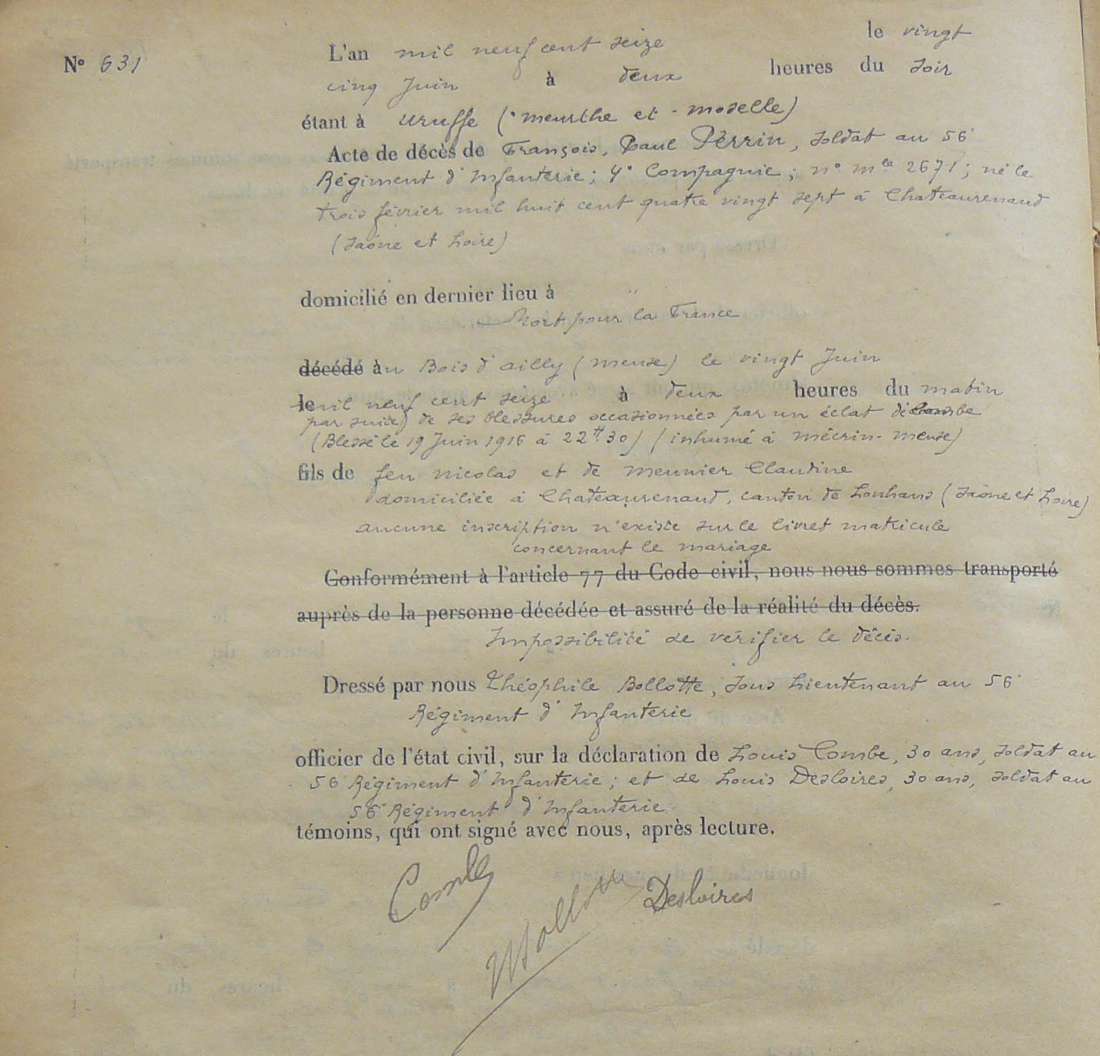 le vingt
N° 631 L'an mil neuf cent seize
cinq Juin à deux heures du soir
étant à Uruffe (meurthe et - moselle)
Acte de décès de François, Paul Perrin, soldat au 56e
Régiment d'Infanterie; 4e Compagnie; n° mle 2671; né le
trois février mil huit cent quatre vingt sept à Chateaurenaud
(Saône et Loire)
domicilié en dernier lieu à "
Mort pour la France
décédé au Bois d'ailly (meuse) le vingt Juin
le mil neuf cent seize à deux heures du matin
par suite) de ses blessures occasionnées par un éclat de bombe
(Blessé le 19 Juin 1916 à 22H30) (inhumé à mécrin-meuse)
fils de feu nicolas et de meunier Claudine
domiciliée à Chateaurenaud, canton de Louhans (Saône et Loire)
aucune inscription n'existe sur le livret matricule
concernant le mariage
Conformément à l'article 77 du Code civil, nous nous sommes transporté
auprès de la personne décédée et assuré de la réalité du décès.
Impossibilité de vérifier le décès.
Dressé par nous Théophile Bollotte, Sous Lieutenant au 56e
Régiment d'Infanterie
officier de l'état civil, sur la déclaration de Louis Combe, 30 ans, soldat au
56e Régiment d'Infanterie; et de Louis Desloires, 30 ans, soldat au
56e Régiment d'Infanterie.
témoins, qui ont signé avec nous, après lecture.
Combe
Desloires